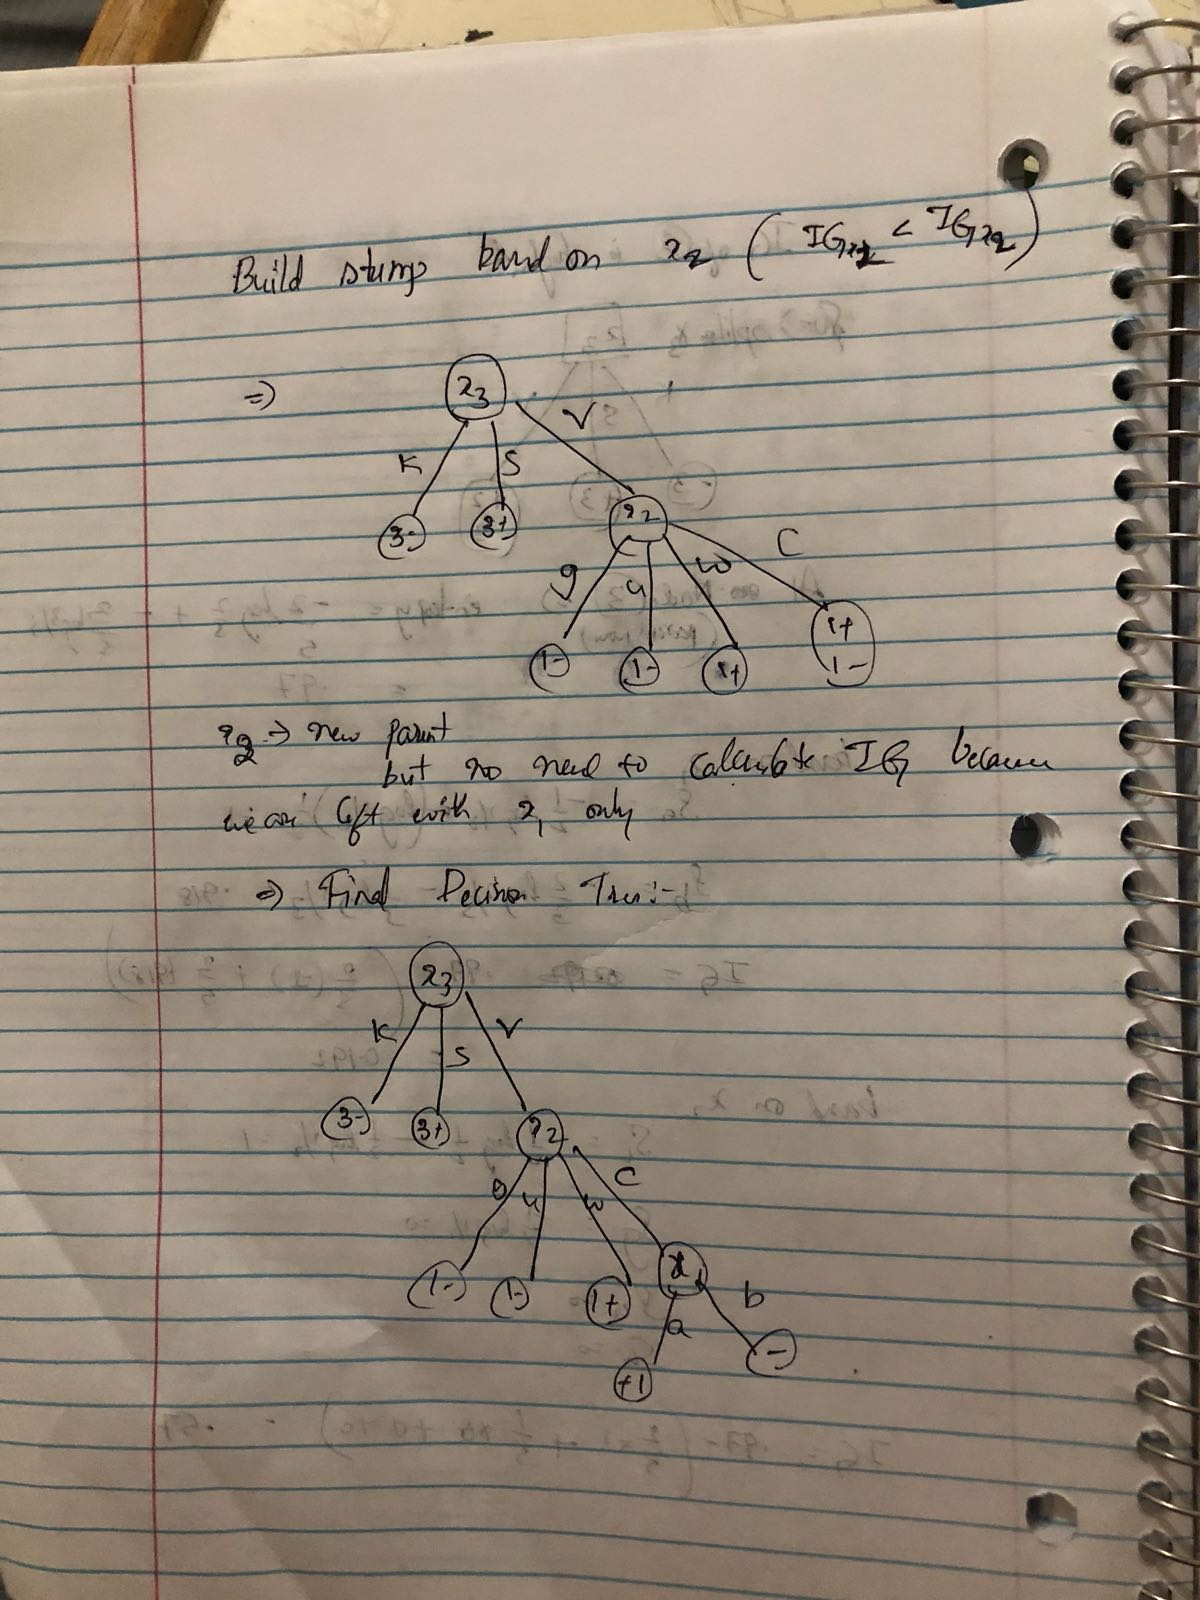 Build stump based on x2 ( IGx1 < IGx2 )
=> x3
K S V
3- 3+ x2
g u w C
1- 1- 1+ 1+
1-
x2 -> new parent
but no need to calculate IG because
we are left with x1 only
=> Final Decision Tree:-
x3
K S V
3- 3+ x2
g u w C
1- 1- 1+ x1
a b
+1 -